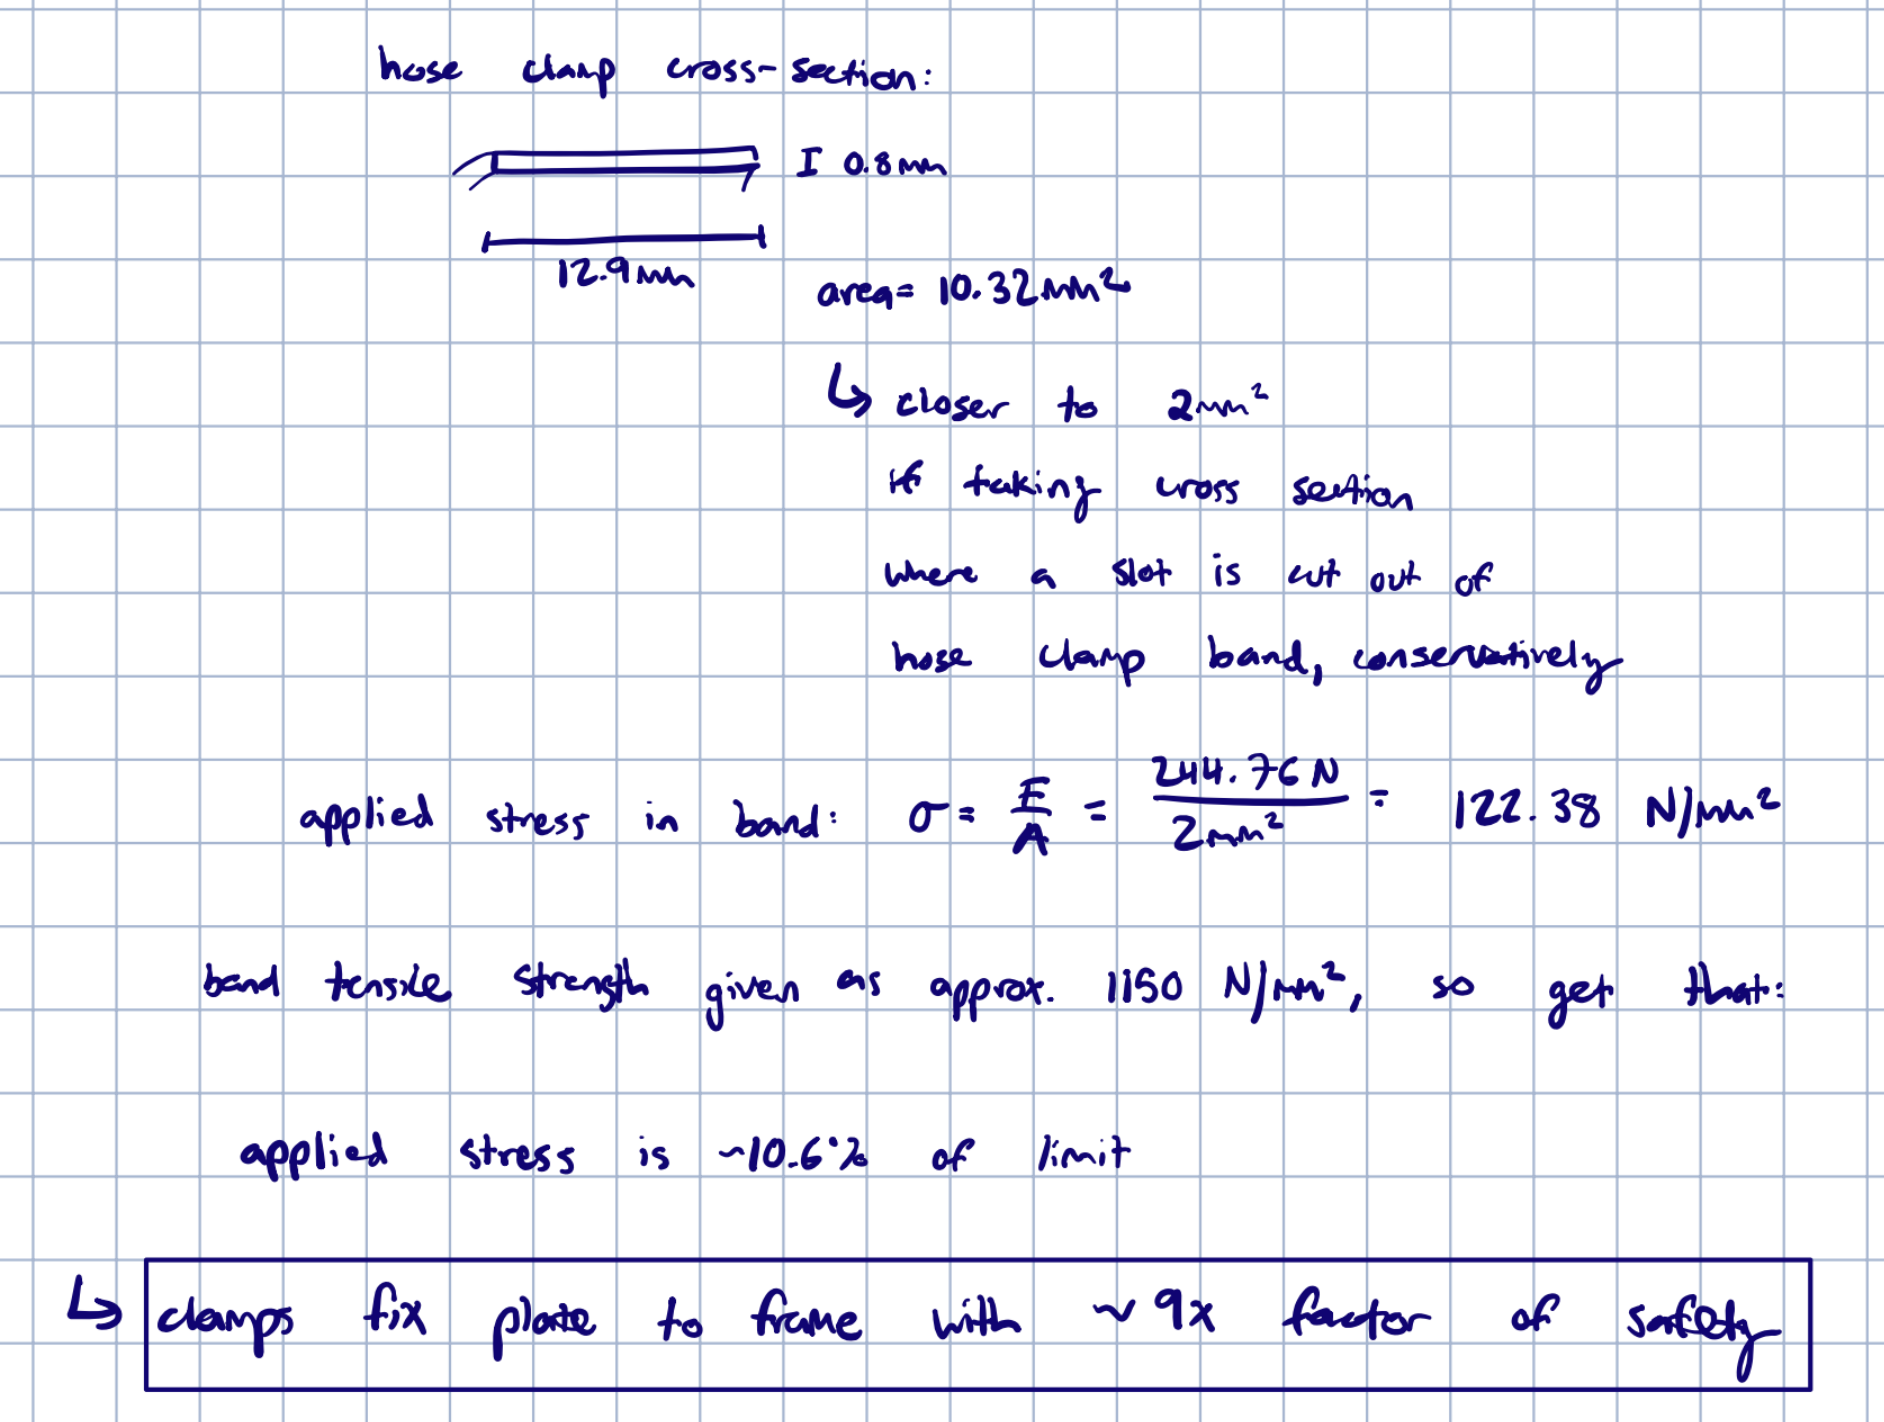 hose clamp cross-section:
I 0.8mm
12.9mm
area= 10.32mm²
↳ closer to 2mm²
if taking cross section
where a slot is cut out of
hose clamp band, conservatively
applied stress in band: σ = F/A = 244.76N/2mm² = 122.38 N/mm²
band tensile strength given as approx. 1150 N/mm², so get that:
applied stress is ~10.6% of limit
↳ clamps fix plate to frame with ~9x factor of safety